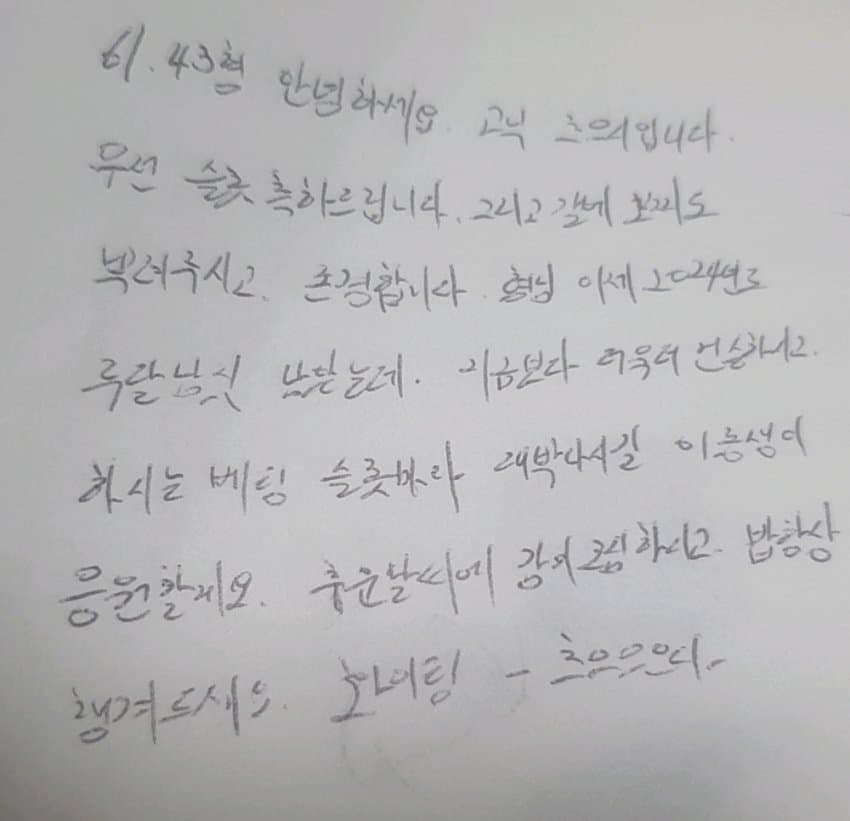 61.43형 안녕하세요. 고닉 츠의입니다.
우선 슬롯 축하드립니다. 그리고 갈에
뿌려주시고. 존경합니다. 형님 이제 2024년도
남았는데. 지금보다 더욱더 건실하시고.
하시는 베팅 슬롯마라 대박나시길 이동생이
응원할게요. 추운날씨에 감기조심하시고. 밥항상
챙겨드세요. 화이팅 -